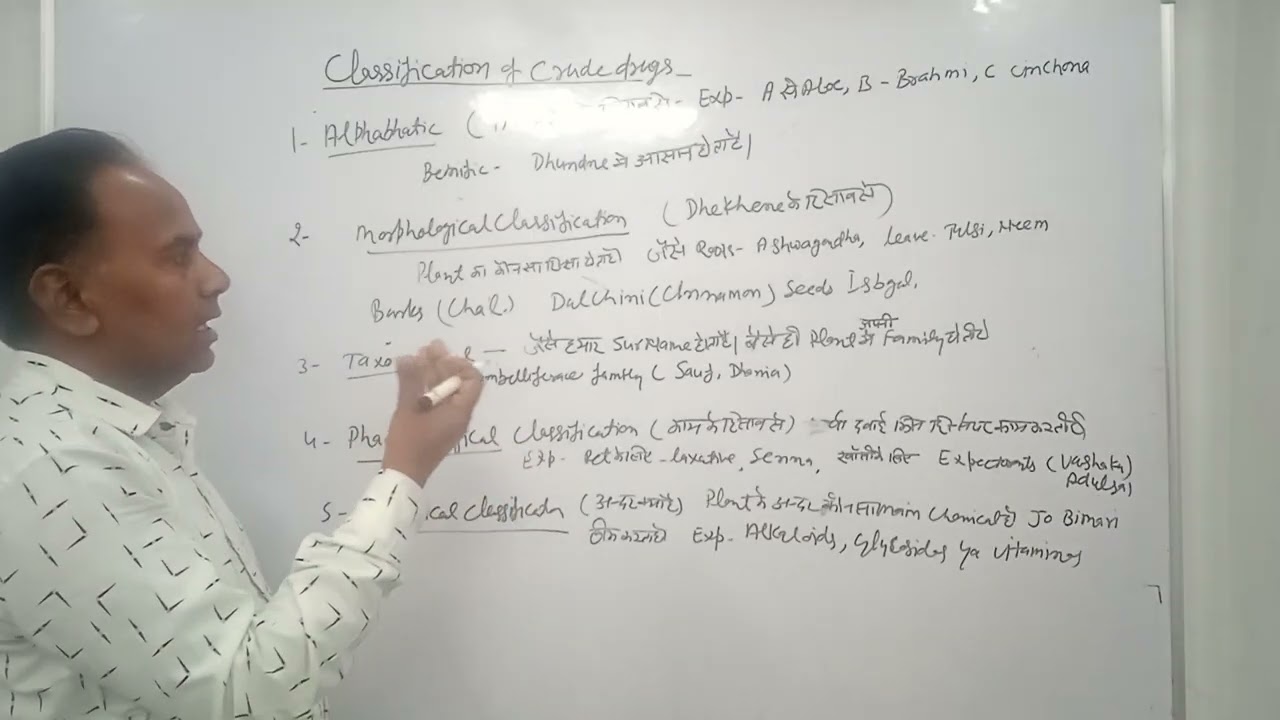 Classification of Crude drugs
1- Alphabhatic ( Exp- A से Aloe, B - Brahmi, C Cinchona
Benific - Dhundne मे आसान होता है।
2- Morphological Classification (Dhekhene के हिसाब से)
Plant का कौनसा हिस्सा है जैसे Roots- Ashwagandha, Leave- Tulsi, Neem
Barks (Chal) Dalchini (Cinnamon) Seeds Isbgol,
3- Taxo — जैसे हमार Surname होता है। वैसे ही Plant मे अपनी Family होती है
family ( Sauf, Dhania)
4- Pha gical Classification (काम के हिसाब से) दवाई किस पर काम करती है
Exp- Pet के लिए - laxative, Senna, खाँसी के लिए Expectorants (Vashaka)
Adulsa)
5- ical Classification (अन्दर क्या है) Plant के अन्दर कौनसा main Chemical है Jo Bimari
ठीक करता है Exp- Alkaloids, Glycosides ya Vitamines